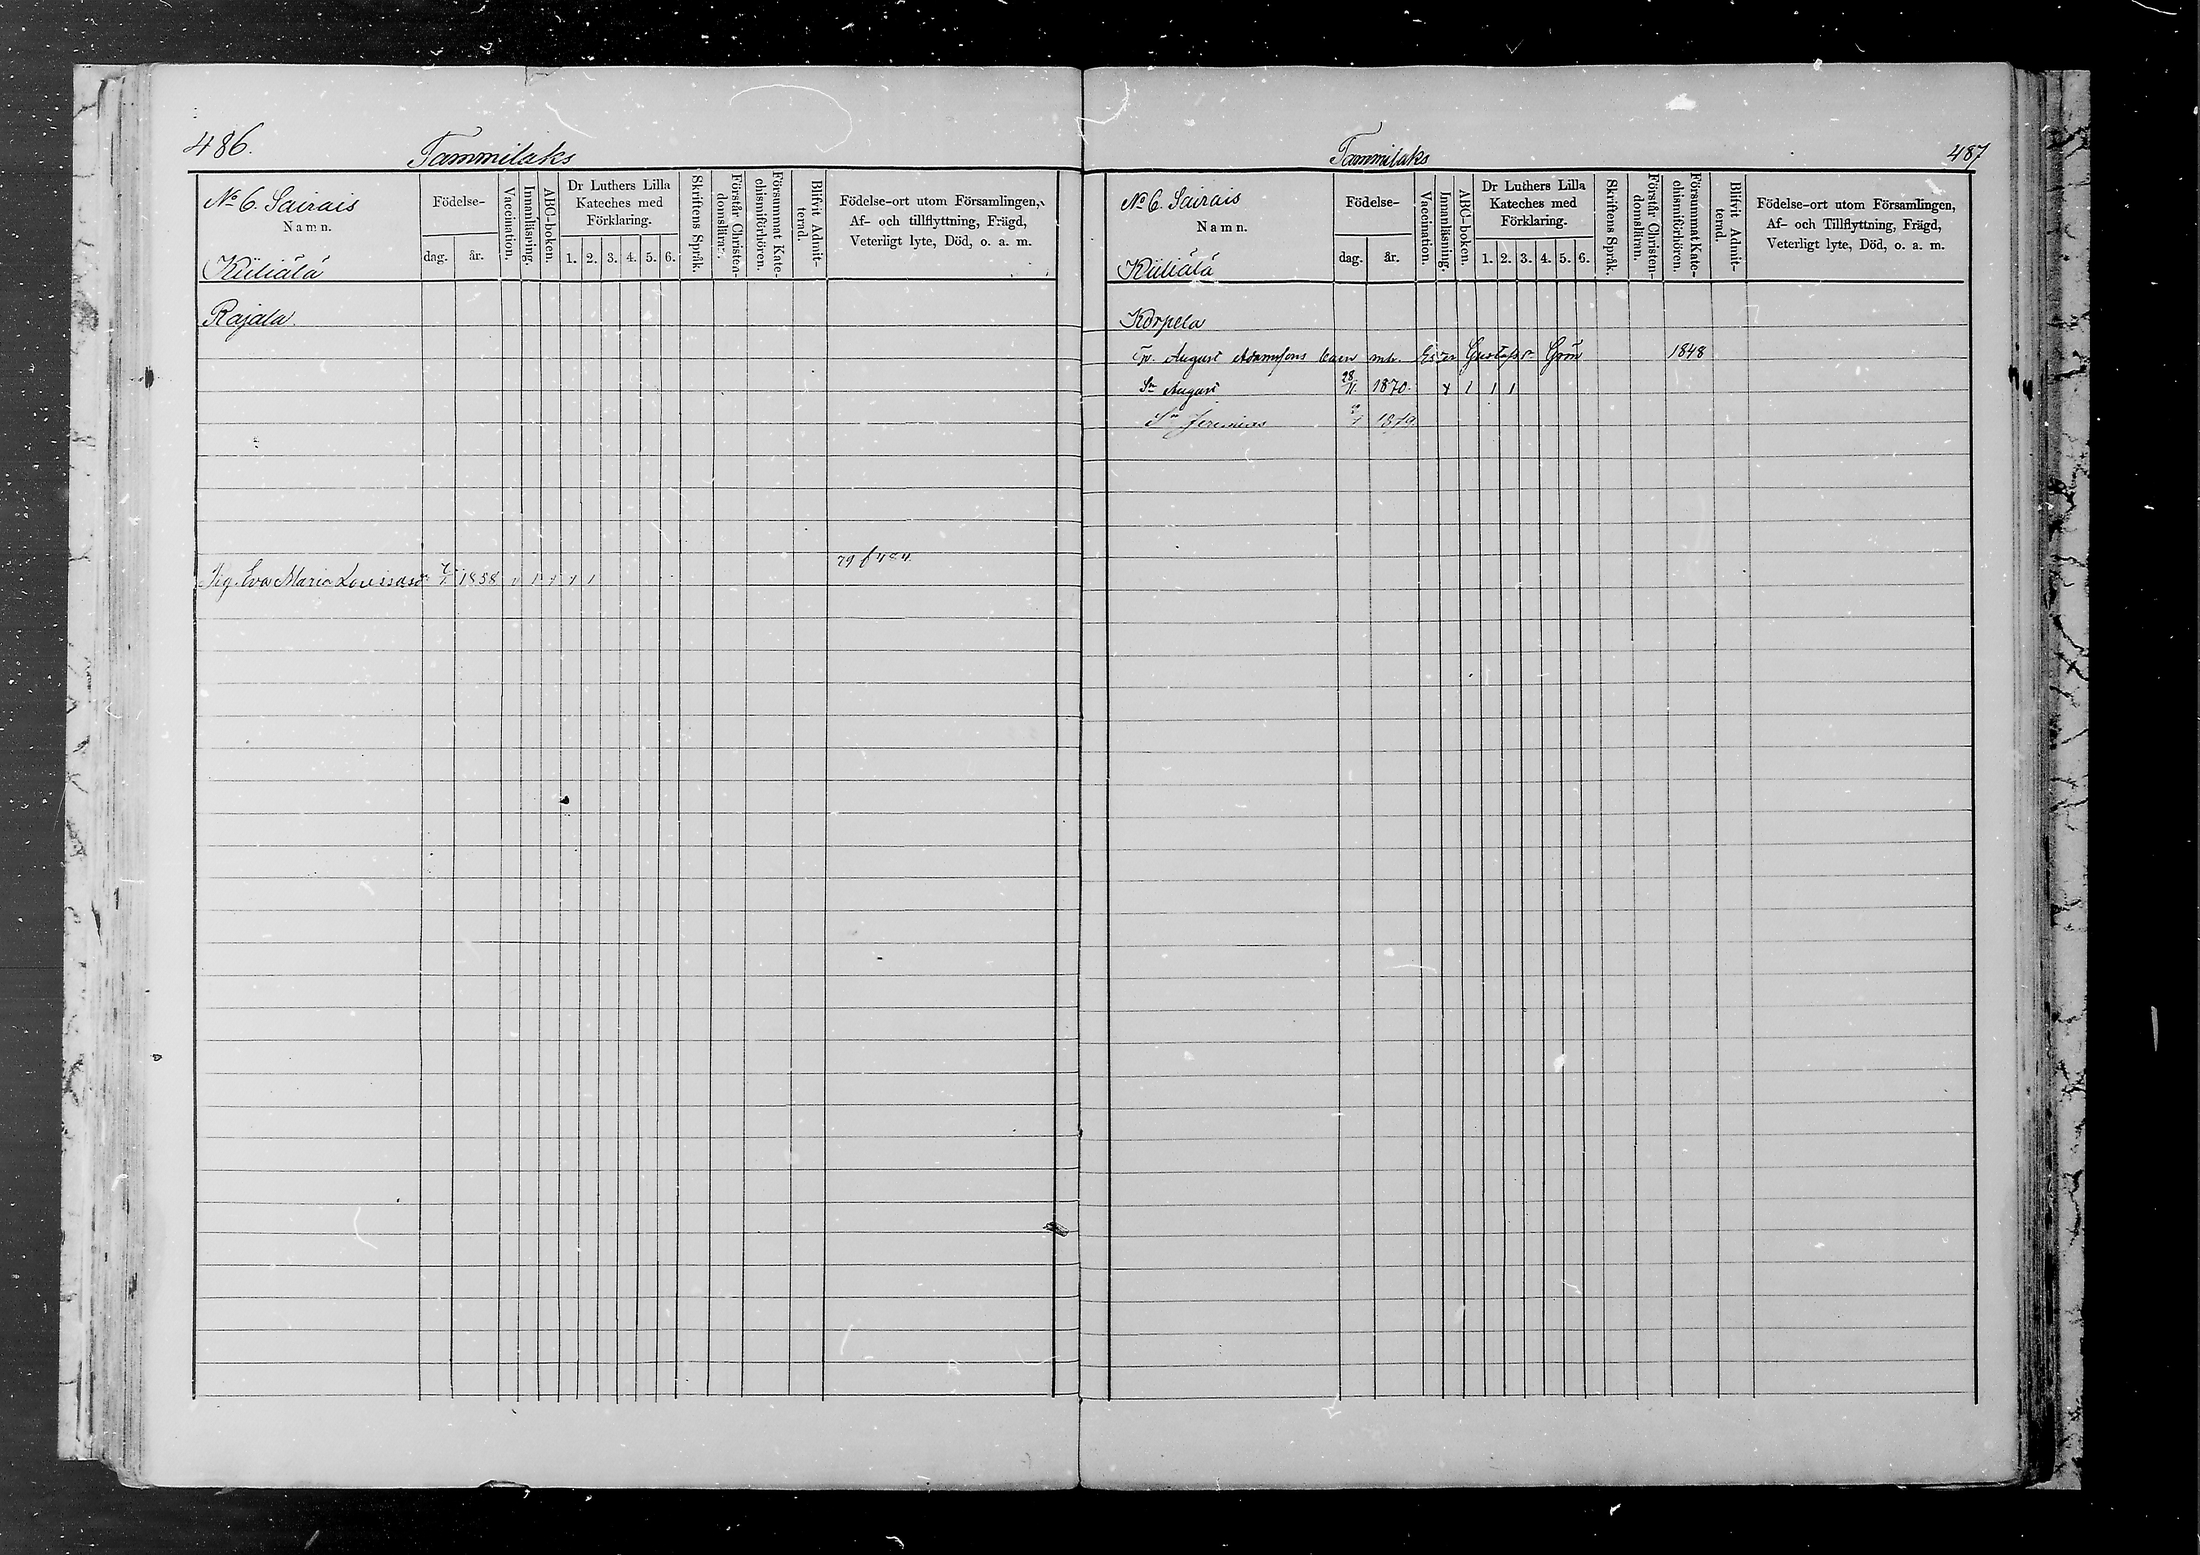 486.
Tammilaks
No 6. Sairais
Namn.
Küliälä
Födelse-
dag.
år.
Vaccination.
Innanläsning.
ABC-boken.
Dr Luthers Lilla
Kateches med
Förklaring.
1. 2. 3. 4. 5. 6.
Skriftens Språk.
Förstår Christen-
domsläran.
Försummat Kate-
chismiförhören.
Blifvit Admit-
terad.
Födelse-ort utom Församlingen,
Af- och tillflyttning, Frägd,
Veterligt lyte, Död, o. a. m.
Rajala.
79
Eva Maria 1858
Tammilaks
487
No 6. Sairais
Namn.
Küliälä
Födelse-
dag.
år.
Vaccination.
Innanläsning.
ABC-boken.
Dr Luthers Lilla
Kateches med
Förklaring.
1. 2. 3. 4. 5. 6.
Skriftens Språk.
Förstår Christen-
domsläran.
Försummat Kate-
chismiförhören.
Blifvit Admit-
terad.
Födelse-ort utom Församlingen,
Af- och Tillflyttning, Frägd,
Veterligt lyte, Död, o. a. m.
Korpela
August Adamsons barn Gustafsr Grön 1848
Sn August 28/11 1870.
Sn Jeremias 1879.